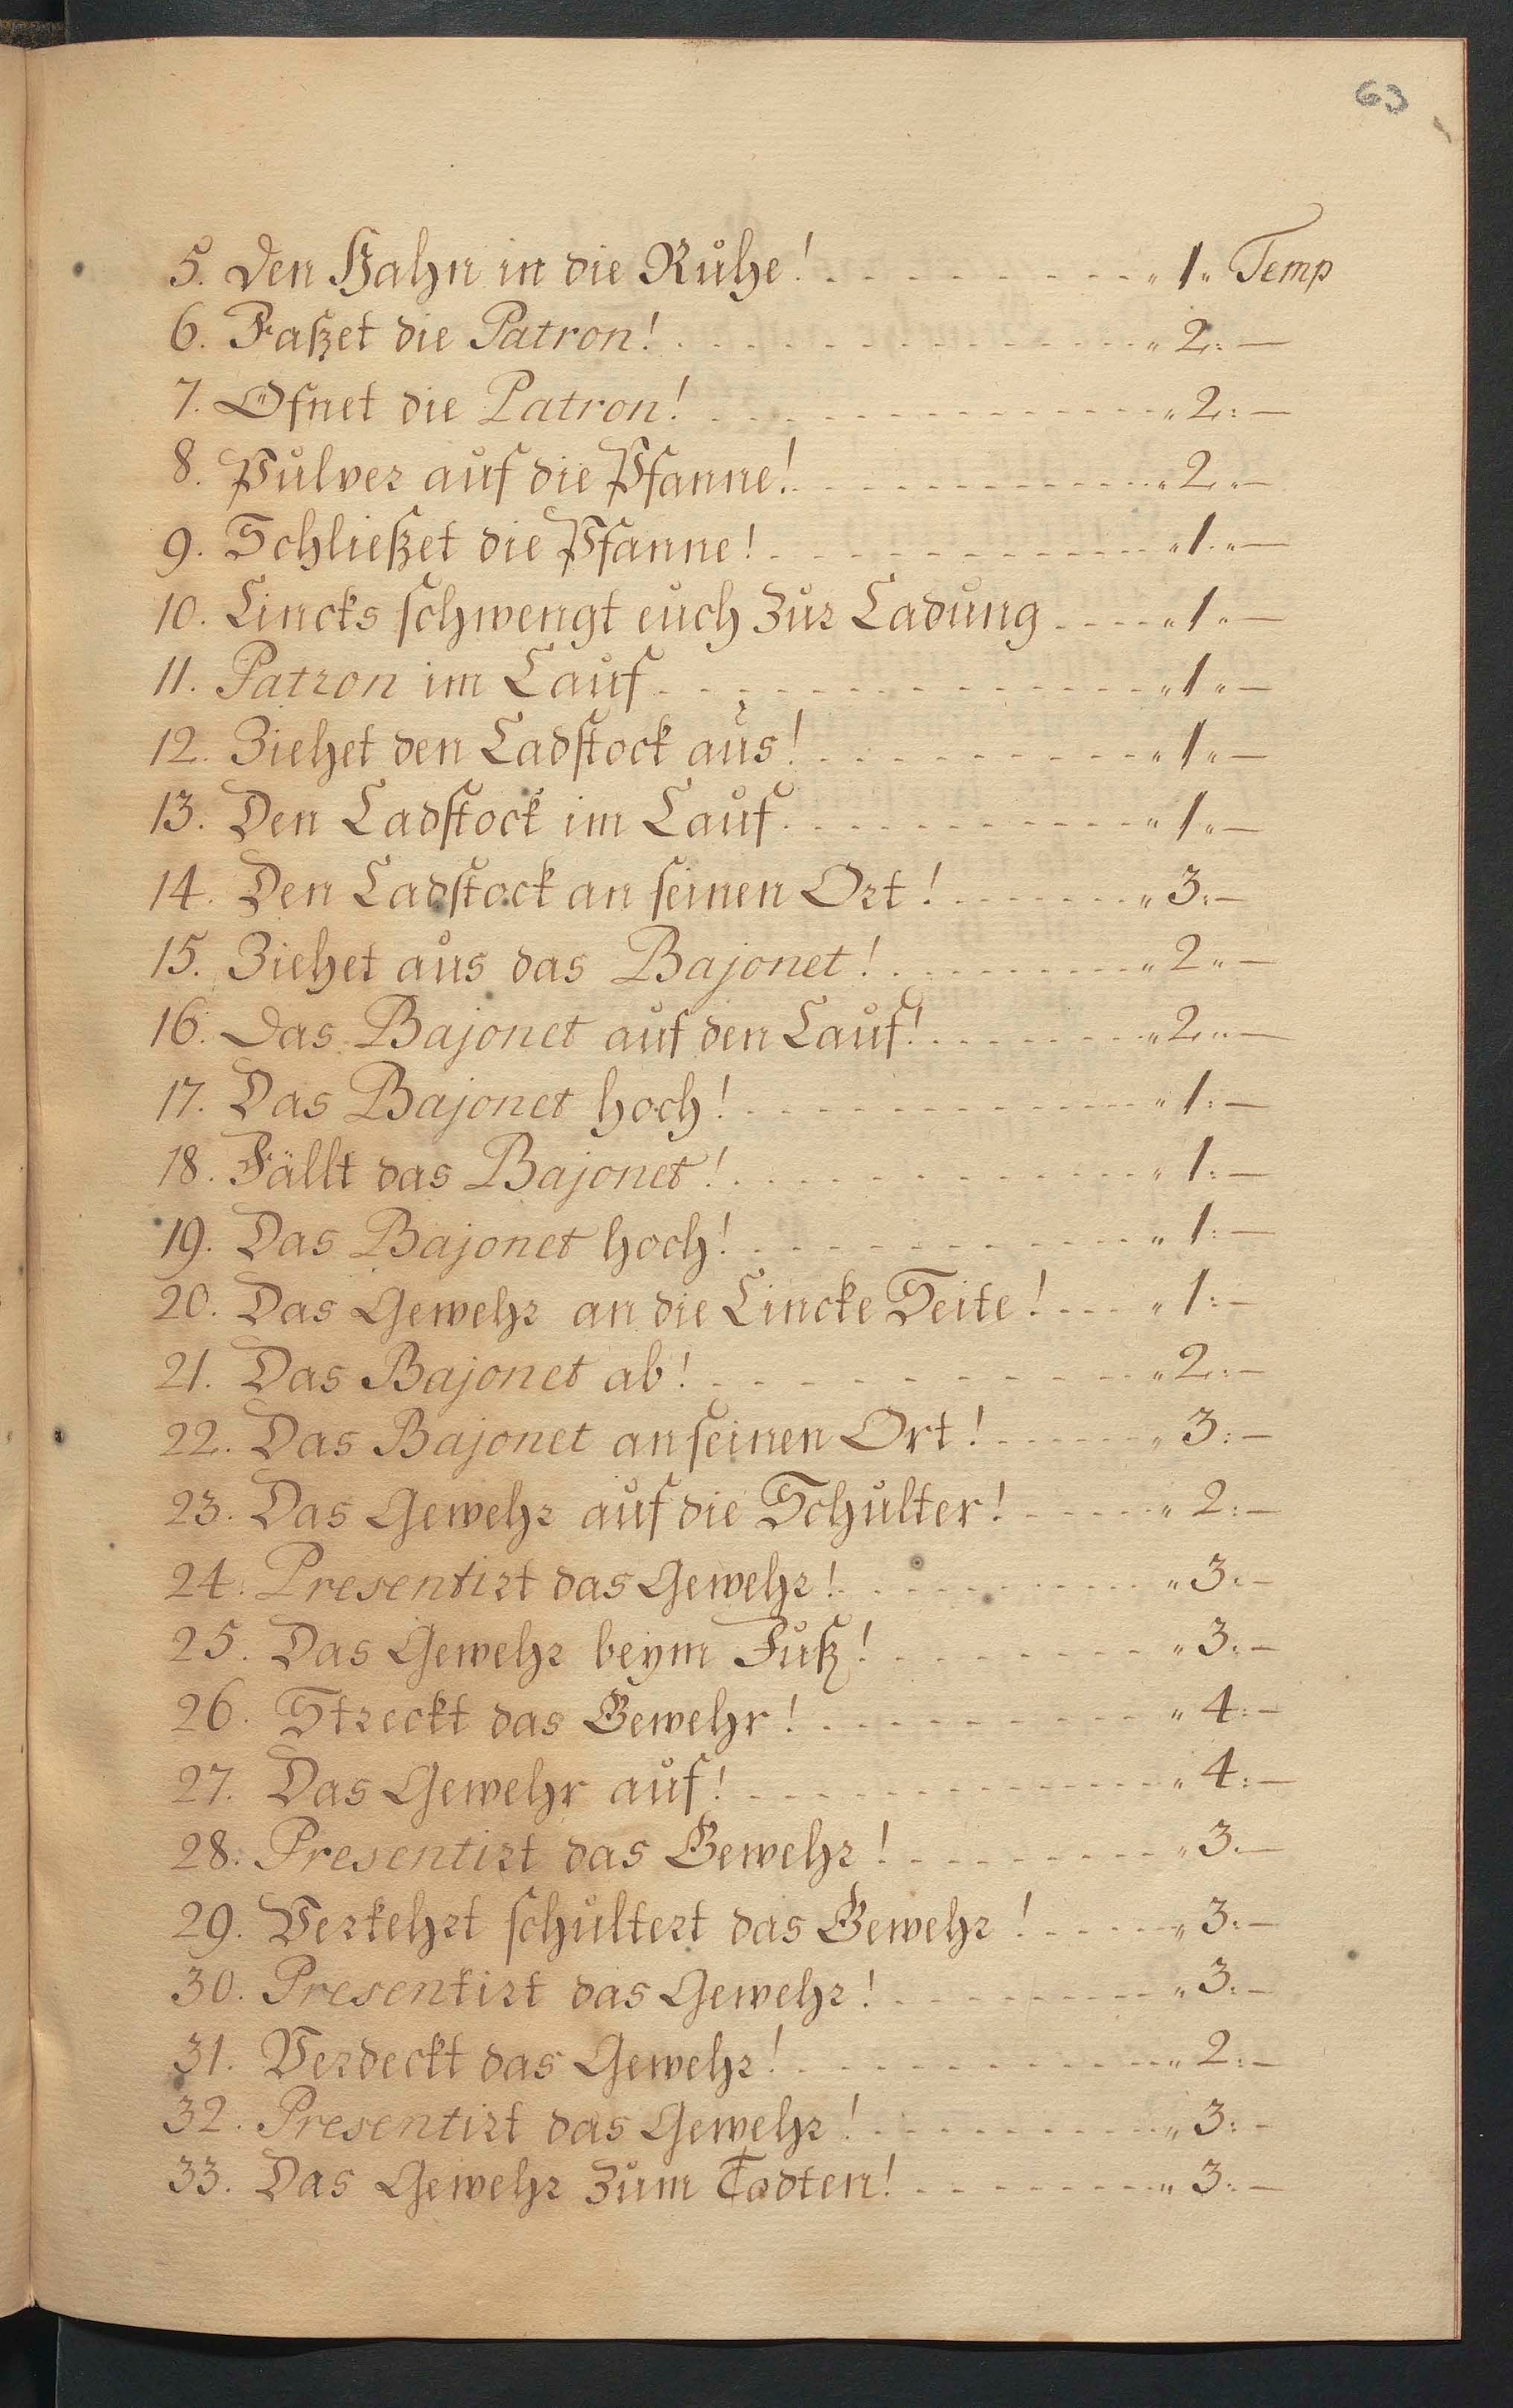 63
5. Den Hahn in die Ruhe! - - - - - - - - - - „ 1 „ Temp
6. Faßet die Patron! - - - - - - - - - - - - - - „ 2: —
7. Öfnet die Patron! - - - - - - - - - - - - - - „ 2: —
8. Pulver auf die Pfanne! - - - - - - - - - - - „ 2 „ —
9. Schließet die Pfanne! - - - - - - - - - - - - „ 1 „ —
10. Lincks schwengt euch zur Ladung - - - - „ 1 „ —
11. Patron im Lauf - - - - - - - - - - - - - - - „ 1 „ —
12. Ziehet den Ladstock aus! - - - - - - - - - - „ 1 „ —
13. Den Ladstock im Lauf - - - - - - - - - - - „ 1 „ —
14. Den Ladstock an seinen Ort! - - - - - - - „ 3: —
15. Ziehet aus das Bajonet! - - - - - - - - - „ 2 „ —
16. Das Bajonet auf den Lauf! - - - - - - - - „ 2 „ —
17. Das Bajonet hoch! - - - - - - - - - - - - - „ 1: —
18. Fällt das Bajonet! - - - - - - - - - - - - - „ 1: —
19. Das Bajonet hoch! - - - - - - - - - - - - „ 1: —
20. Das Gewehr an die Lincke Seite! - - - „ 1: —
21. Das Bajonet ab! - - - - - - - - - - - - - „ 2: —
22. Das Bajonet an seinen Ort! - - - - - - „ 3: —
23. Das Gewehr auf die Schulter! - - - - - „ 2: —
24. Presentirt das Gewehr! - - - - - - - - - - „ 3: —
25. Das Gewehr beym Fuß! - - - - - - - - „ 3: —
26. Streckt das Gewehr! - - - - - - - - - - - „ 4: —
27. Das Gewehr auf! - - - - - - - - - - - - - „ 4: —
28. Presentirt das Gewehr! - - - - - - - - - „ 3: —
29. Verkehrt schultert das Gewehr! - - - - - „ 3: —
30. Presentirt das Gewehr! - - - - - - - - - „ 3: —
31. Verdeckt das Gewehr! - - - - - - - - - - - „ 2: —
32. Presentirt das Gewehr! - - - - - - - - - - „ 3: —
33. Das Gewehr zum Todten! - - - - - - - - „ 3: —